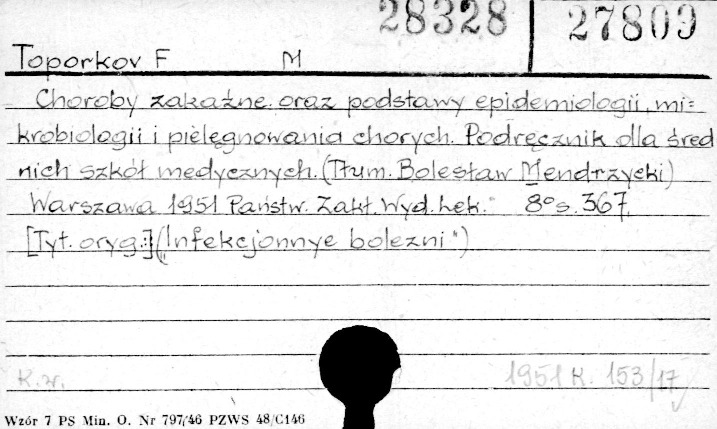 28328 27809
Toporkov F M
Choroby zakaźne oraz podstawy epidemiologii, mi=
krobiologii i pielęgnowania chorych. Podręcznik dla śred
nich szkół medycznych. (Tłum. Bolesław Mendrzycki)
Warszawa 1951 Państw. Zakł. Wyd. Lek. 8° s. 367.
[Tyt. oryg.:] („Infekcjonnye bolezni")
K.w. 1951 K. 153/17
Wzór 7 PS Min. O. Nr 797/46 PZWS 48/C146